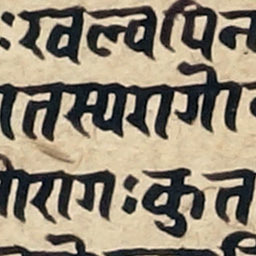 ःखल्वपिन
ातस्यरागो
ोरागःकुत